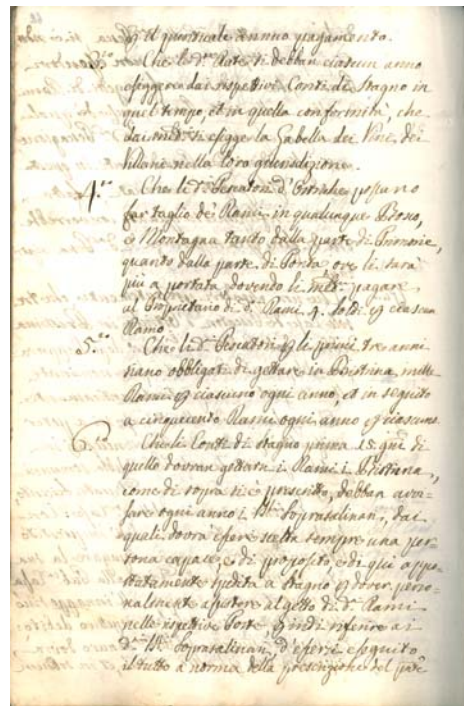 il puntuale annuo pagamento.
Che le d.e Rate si debban ciascun anno
esiggere dai rispettivi Conti di Stagno in
quel tempo, et in quella conformità, che
dai med.i si esigge la Gabella dei Vini, dei
Villani nella loro giurisdizione.
4.o Che li d.i Pescatori d'Ostriche possano
far taglio de' Rami in qualunque Bosco,
o Montagna tanto dalla parte di
quanto dalla parte di Ponta, ove li sarà
più a portata, dovendo li med.i pagare
al Proprietario di d.i Rami 4. soldi ciascun
Ramo.
5.o Che li d.i Pescatori li primi tre anni
siano obbligati di gettare in Bistrina mille
Rami ciascuno ogni anno, et in seguito
a cinquecento Rami ogni anno ciascuno.
6.o Che li Conti di Stagno prima 15 gni di
quello dovran gettarsi i Rami i Bistrina,
come di sopra si è prescritto, debban avvi-
sare ogni anno i Soprasalinari, dai
quali dovrà essere scelta sempre una per
sona capace, e di proposito, e di qui appo-
statamente spedita a Stagno dover perso-
nalmente assistere al getto di d.i Rami
nelle rispettive Poste indi riferire ai
d.i Soprasalinari, d'essersi eseguito
il tutto a norma della prescrizione del